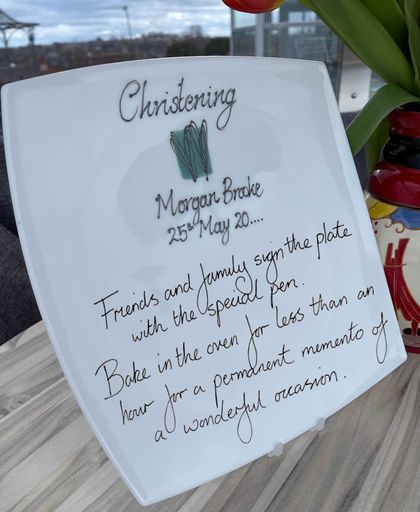 Christening
Morgan Brake
25th May 20....
Friends and family sign the plate
with the special pen.
Bake in the oven for less than an
hour for a permanent memento of
a wonderful occasion.